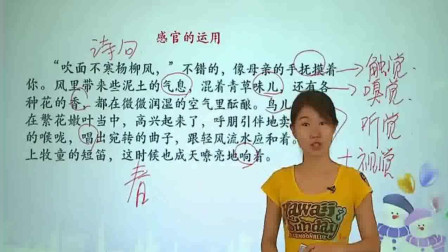 感官的运用
诗句
“吹面不寒杨柳风，”不错的，像母亲的手抚摸着
你。风里带来些泥土的气息，混着青草味儿，还有各
种花的香，都在微微润湿的空气里酝酿。鸟儿
在繁花嫩叶当中，高兴起来了，呼朋引伴地卖
的喉呢，唱出宛转的曲子，跟轻风流水应和着。
上牧童的短笛，这时候也成天嘹亮地响着。
触觉
嗅觉
听觉
+视觉
春
HAWAII
Sunday